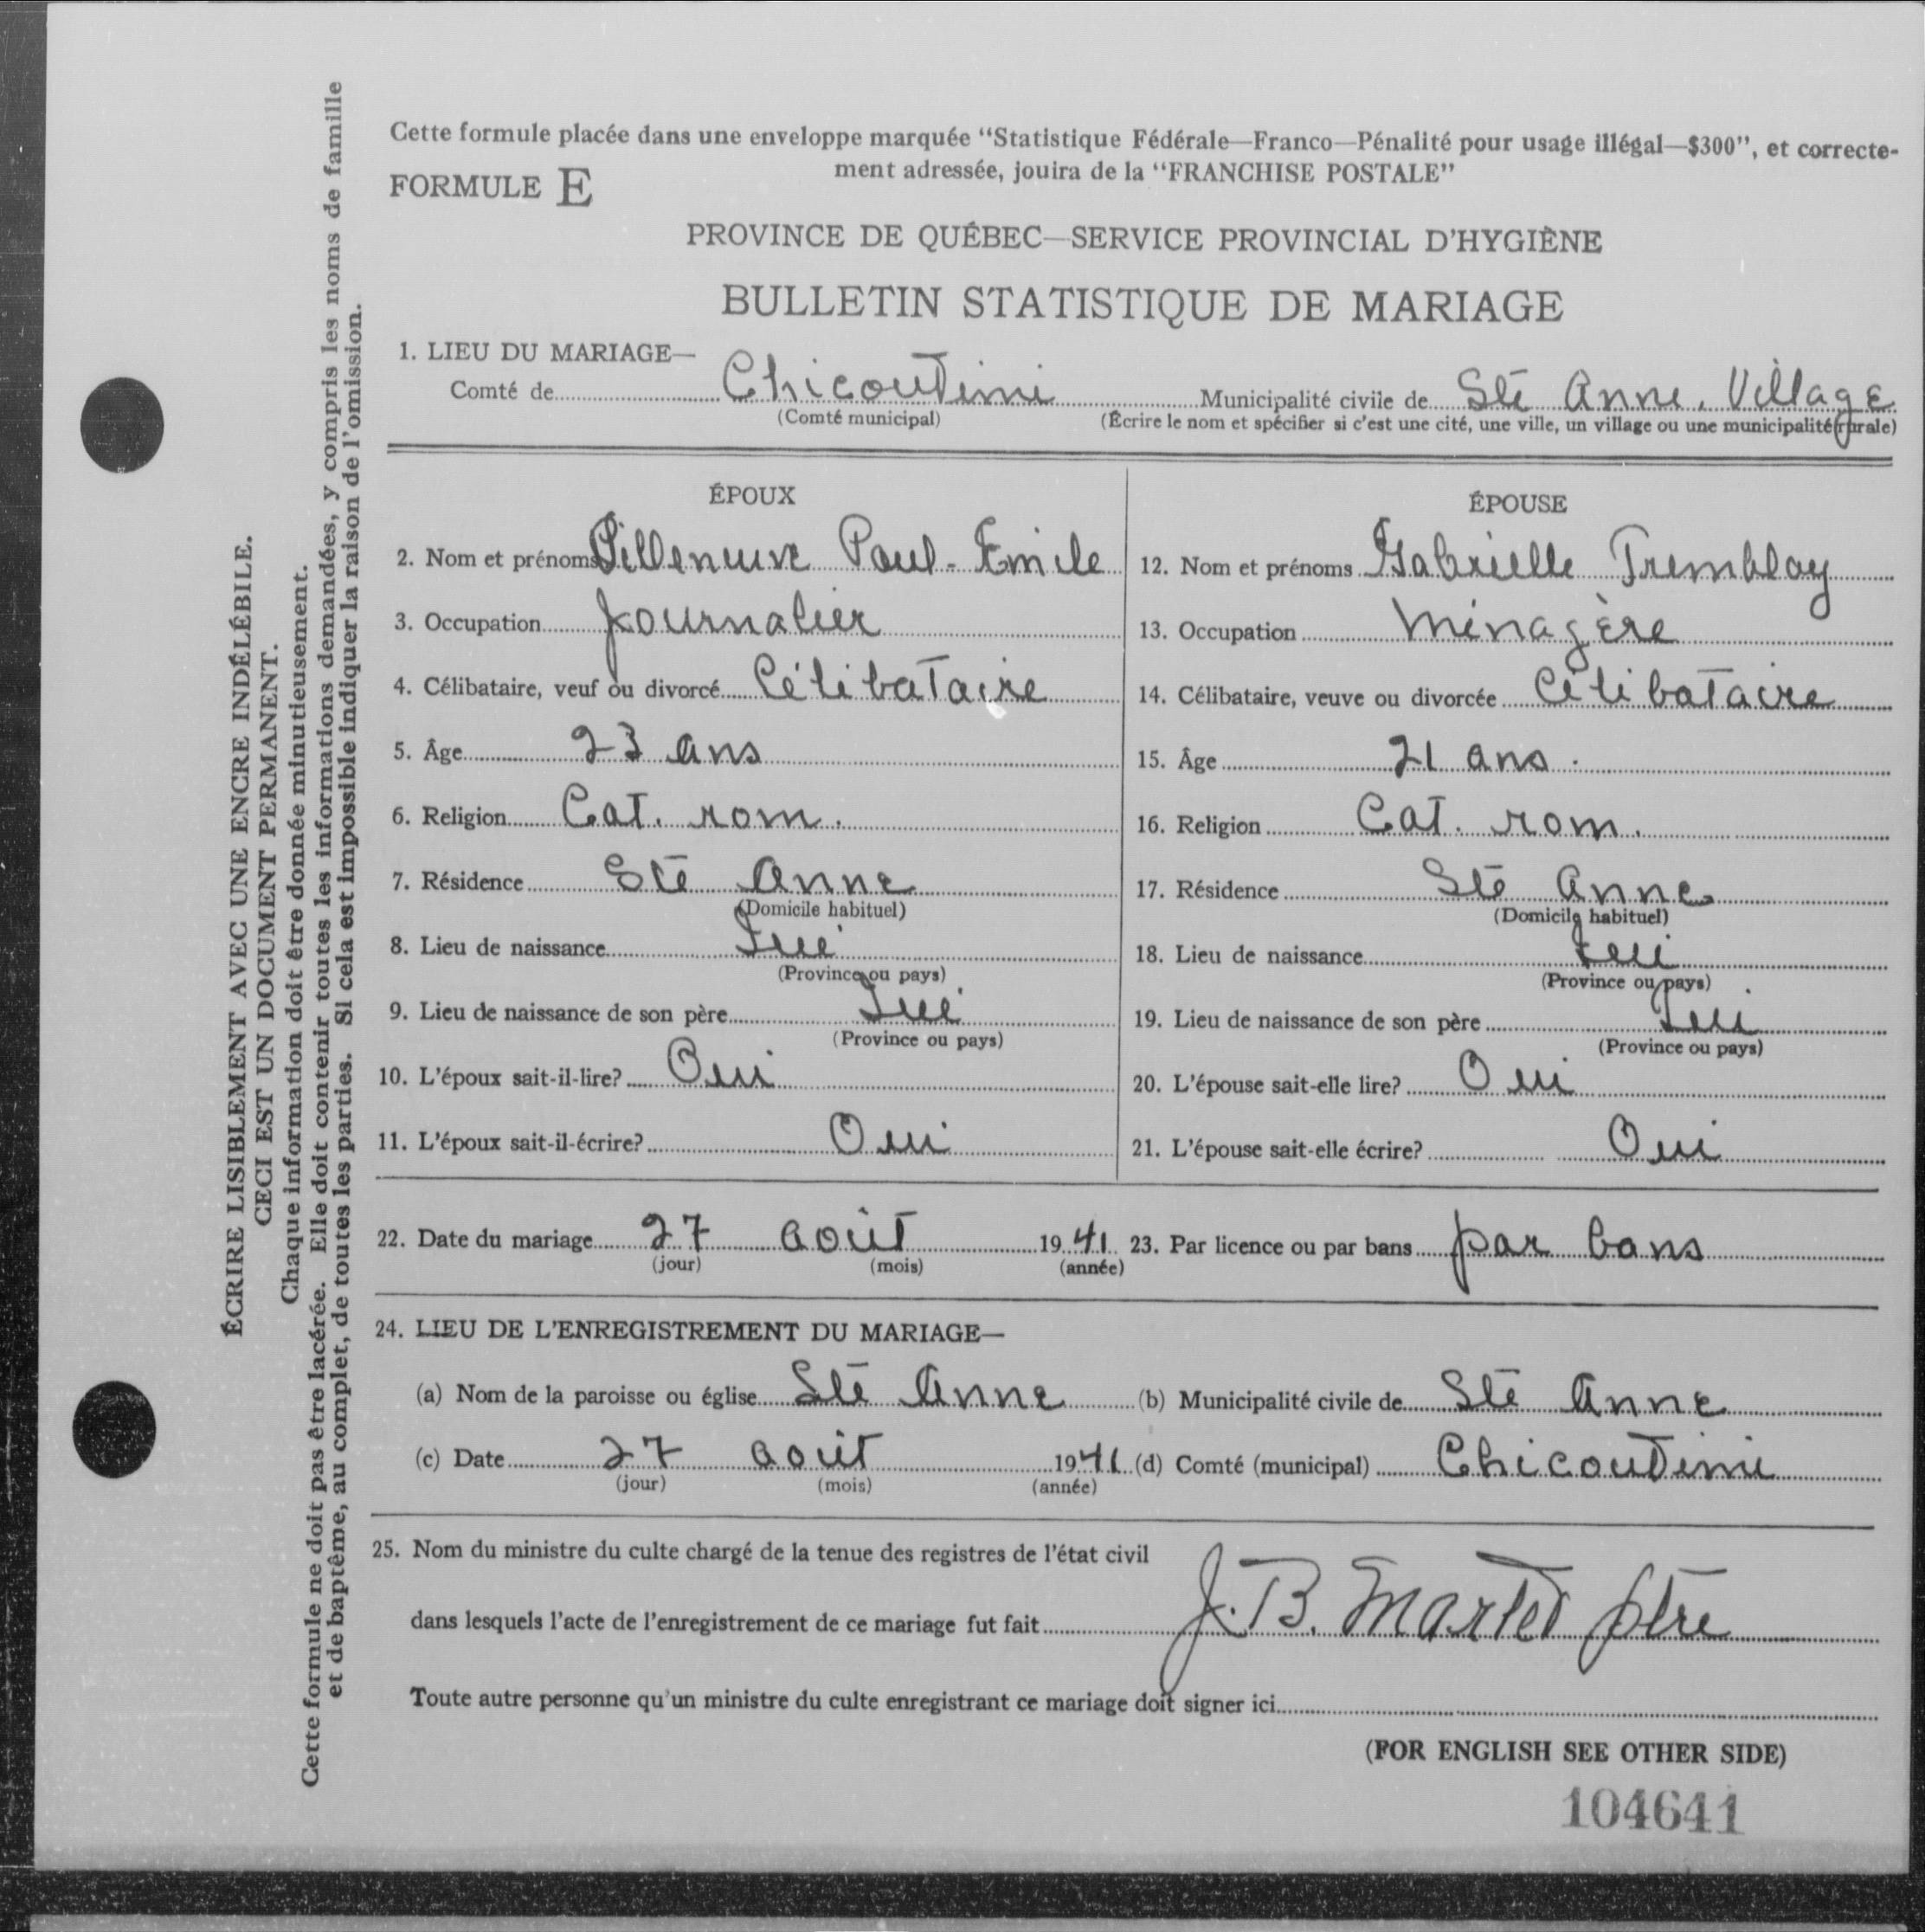 Cette formule placée dans une enveloppe marquée "Statistique Fédérale—Franco—Pénalité pour usage illégal—$300", et correcte-
ment adressée, jouira de la "FRANCHISE POSTALE"
FORMULE E
PROVINCE DE QUÉBEC—SERVICE PROVINCIAL D'HYGIÈNE
BULLETIN STATISTIQUE DE MARIAGE
1. LIEU DU MARIAGE—
Comté de Chicoutimi Municipalité civile de Ste Anne. Village
(Comté municipal) (Écrire le nom et spécifier si c'est une cité, une ville, un village ou une municipalité rurale)
ÉPOUX
2. Nom et prénoms Villeneuve Paul-Emile
3. Occupation Journalier
4. Célibataire, veuf ou divorcé Célibataire
5. Âge 23 ans
6. Religion Cat. rom.
7. Résidence Ste Anne
(Domicile habituel)
8. Lieu de naissance
(Province ou pays)
9. Lieu de naissance de son père
(Province ou pays)
10. L'époux sait-il-lire? Oui
11. L'époux sait-il-écrire? Oui
ÉPOUSE
12. Nom et prénoms Gabrielle Tremblay
13. Occupation Ménagère
14. Célibataire, veuve ou divorcée Célibataire
15. Âge 21 ans.
16. Religion Cat. rom.
17. Résidence Ste Anne
(Domicile habituel)
18. Lieu de naissance
(Province ou pays)
19. Lieu de naissance de son père
(Province ou pays)
20. L'épouse sait-elle lire? Oui
21. L'épouse sait-elle écrire? Oui
22. Date du mariage 27 août 1941 23. Par licence ou par bans par bans
(jour) (mois) (année)
24. LIEU DE L'ENREGISTREMENT DU MARIAGE—
(a) Nom de la paroisse ou église Ste Anne (b) Municipalité civile de Ste Anne
(c) Date 27 août 1941 (d) Comté (municipal) Chicoutimi
(jour) (mois) (année)
25. Nom du ministre du culte chargé de la tenue des registres de l'état civil
dans lesquels l'acte de l'enregistrement de ce mariage fut fait J. B. Martel ptre
Toute autre personne qu'un ministre du culte enregistrant ce mariage doit signer ici
(FOR ENGLISH SEE OTHER SIDE)
104641
ÉCRIRE LISIBLEMENT AVEC UNE ENCRE INDÉLÉBILE.
CECI EST UN DOCUMENT PERMANENT.
Chaque information doit être donnée minutieusement.
Cette formule ne doit pas être lacérée. Elle doit contenir toutes les informations demandées, y compris les noms de famille
et de baptême, au complet, de toutes les parties. Si cela est impossible indiquer la raison de l'omission.